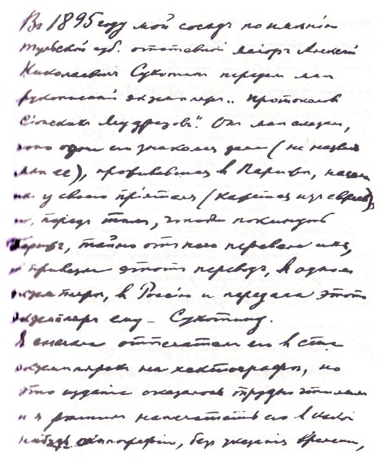 Въ 1895 году мой соседъ по имѣнію
Тульской губ. отставной маіоръ Алексей
Николаевичъ Сухотинъ передалъ мнѣ
рукописный экземпляръ „Протоколовъ
Сіонскихъ Мудрецовъ". Онъ мнѣ сказалъ,
что одна его знакомая дама (не назвалъ
мнѣ ее), проживавшая въ Парижѣ, нашла
ихъ у своего пріятеля (кажется изъ евреевъ),
и, передъ тѣмъ, чтобы покинуть
Парижъ, тайно отъ него перевела ихъ
и привезла этотъ переводъ, въ одномъ
экземплярѣ, въ Россію и передала этотъ
экземпляръ ему - Сухотину.
Я сначала отпечаталъ его въ ста
экземплярахъ на хектографѣ, но
это изданіе оказалось трудно читаемымъ
и я рѣшилъ напечатать его въ какой
нибудь типографіи, безъ указанія времени,